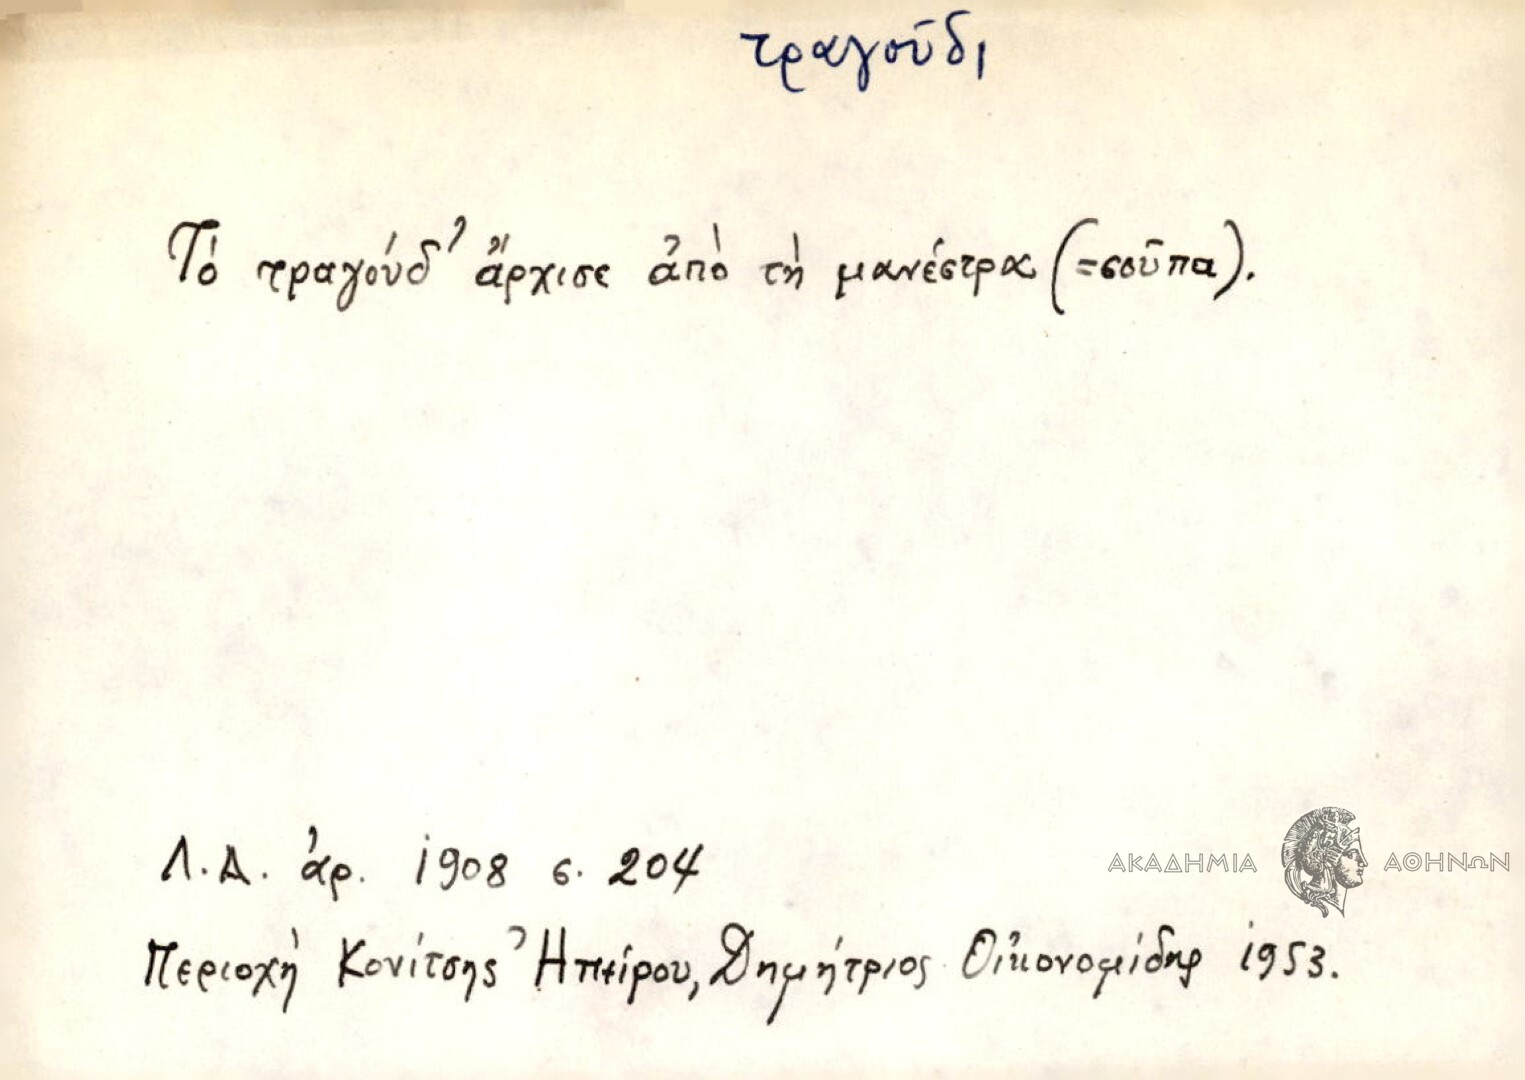 τραγοῦδι
Τὸ τραγούδ' ἄρχισε ἀπὸ τὴ μανέστρα (=σοῦπα).
Λ.Α. ἀρ. 1908 σ. 204
ΑΚΑΔΗΜΙΑ ΑΘΗΝΩΝ
Περιοχὴ Κονίτσης Ἠπείρου, Δημήτριος Οἰκονομίδης 1953.